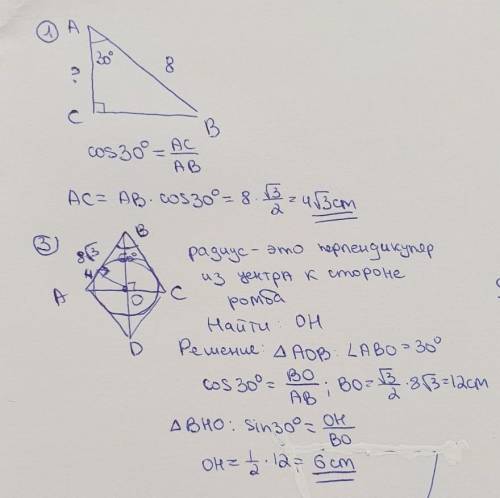 ① A
30°
8
?
C
B
cos30° = AC/AB
AC = AB · cos30° = 8 · √3/2 = 4√3 cm
③ B
8√3
60°
H
A
O
C
D
радиус - это перпендикуляр
из центра к стороне
ромба
Найти: OH
Решение: △AOB: ∠ABO = 30°
cos30° = BO/AB; BO = √3/2 · 8√3 = 12cm
△BHO: sin30° = OH/BO
OH = 1/2 · 12 = 6cm